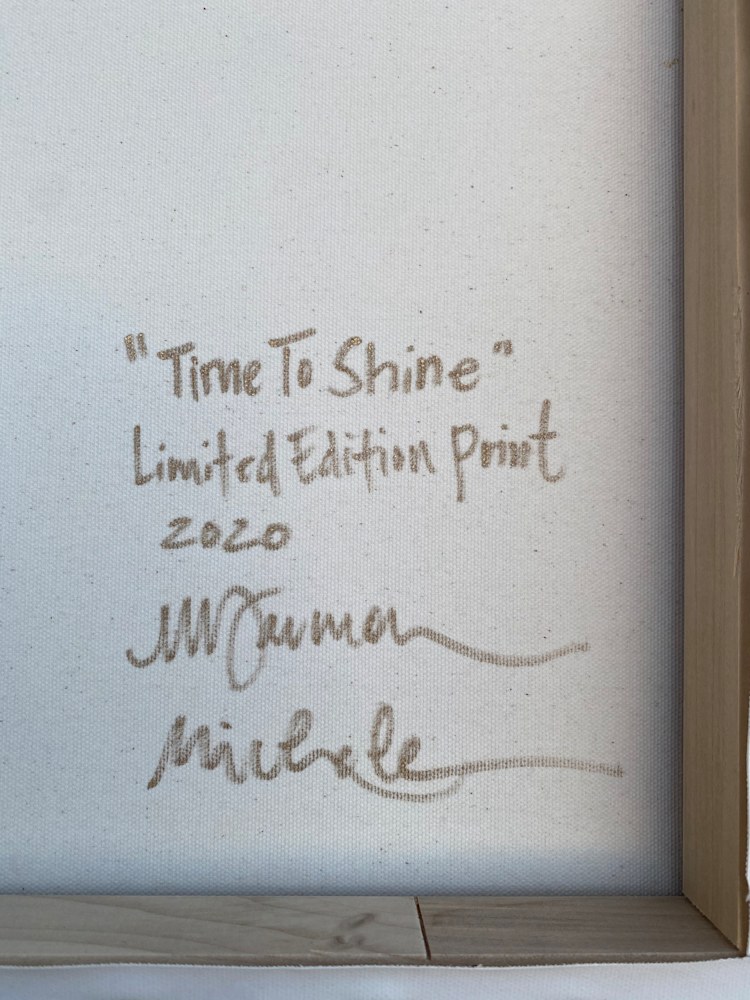 "Time To Shine"
Limited Edition Print
2020
Michele